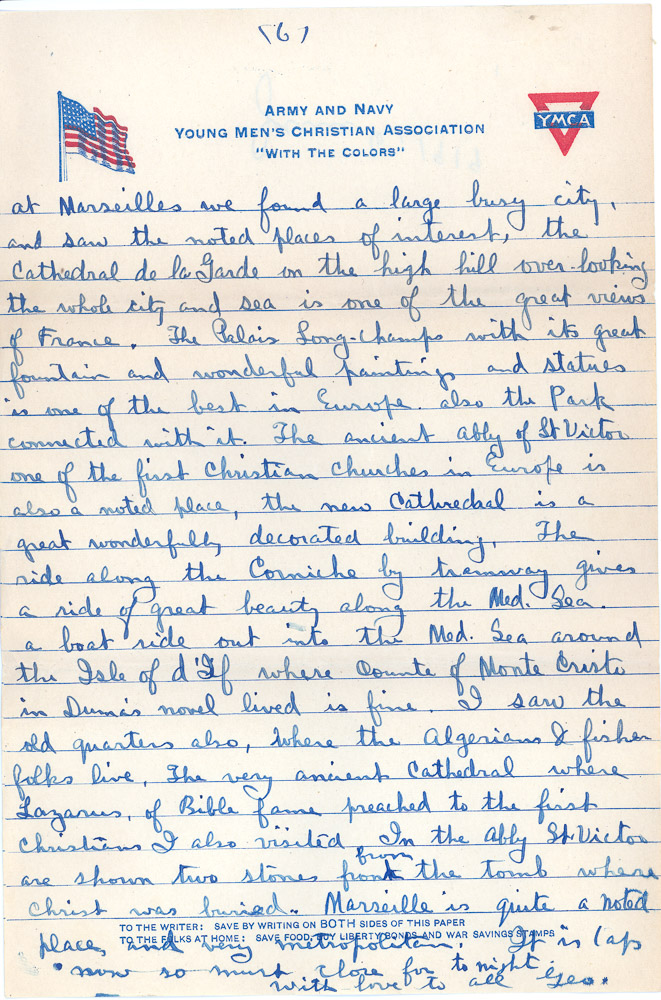 (6)
ARMY AND NAVY
YOUNG MEN'S CHRISTIAN ASSOCIATION
"WITH THE COLORS"
YMCA
at Marseilles we found a large busy city,
and saw the noted places of interest, the
Cathedral de la Garde on the high hill over-looking
the whole city and sea is one of the great views
of France. The Palais Long-champs with its great
fountain and wonderful paintings and statues
is one of the best in Europe. also the Park
connected with it. The ancient abby of St Victor
one of the first Christian Churches in Europe is
also a noted place, the new Cathredral is a
great wonderfully decorated building. The
ride along the Corniche by tramway gives
a ride of great beauty along the Med. Sea.
a boat ride out into the Med. Sea around
the Isle of d'If where Counte of Monte Cristo
in Dumas novel lived is fine. I saw the
old quarters also, where the Algerians & fisher
folks live. The very ancient Cathedral where
Lazarus, of Bible fame preached to the first
Christians I also visited. In the Abby St. Victor
are shown two stones from the tomb where
Christ was buried. Marseille is quite a noted
TO THE WRITER: SAVE BY WRITING ON BOTH SIDES OF THIS PAPER
TO THE FOLKS AT HOME: SAVE FOOD, BUY LIBERTY BONDS AND WAR SAVINGS STAMPS
place, and very metropolitan. It is
now so must close for to night
with love to all Geo.